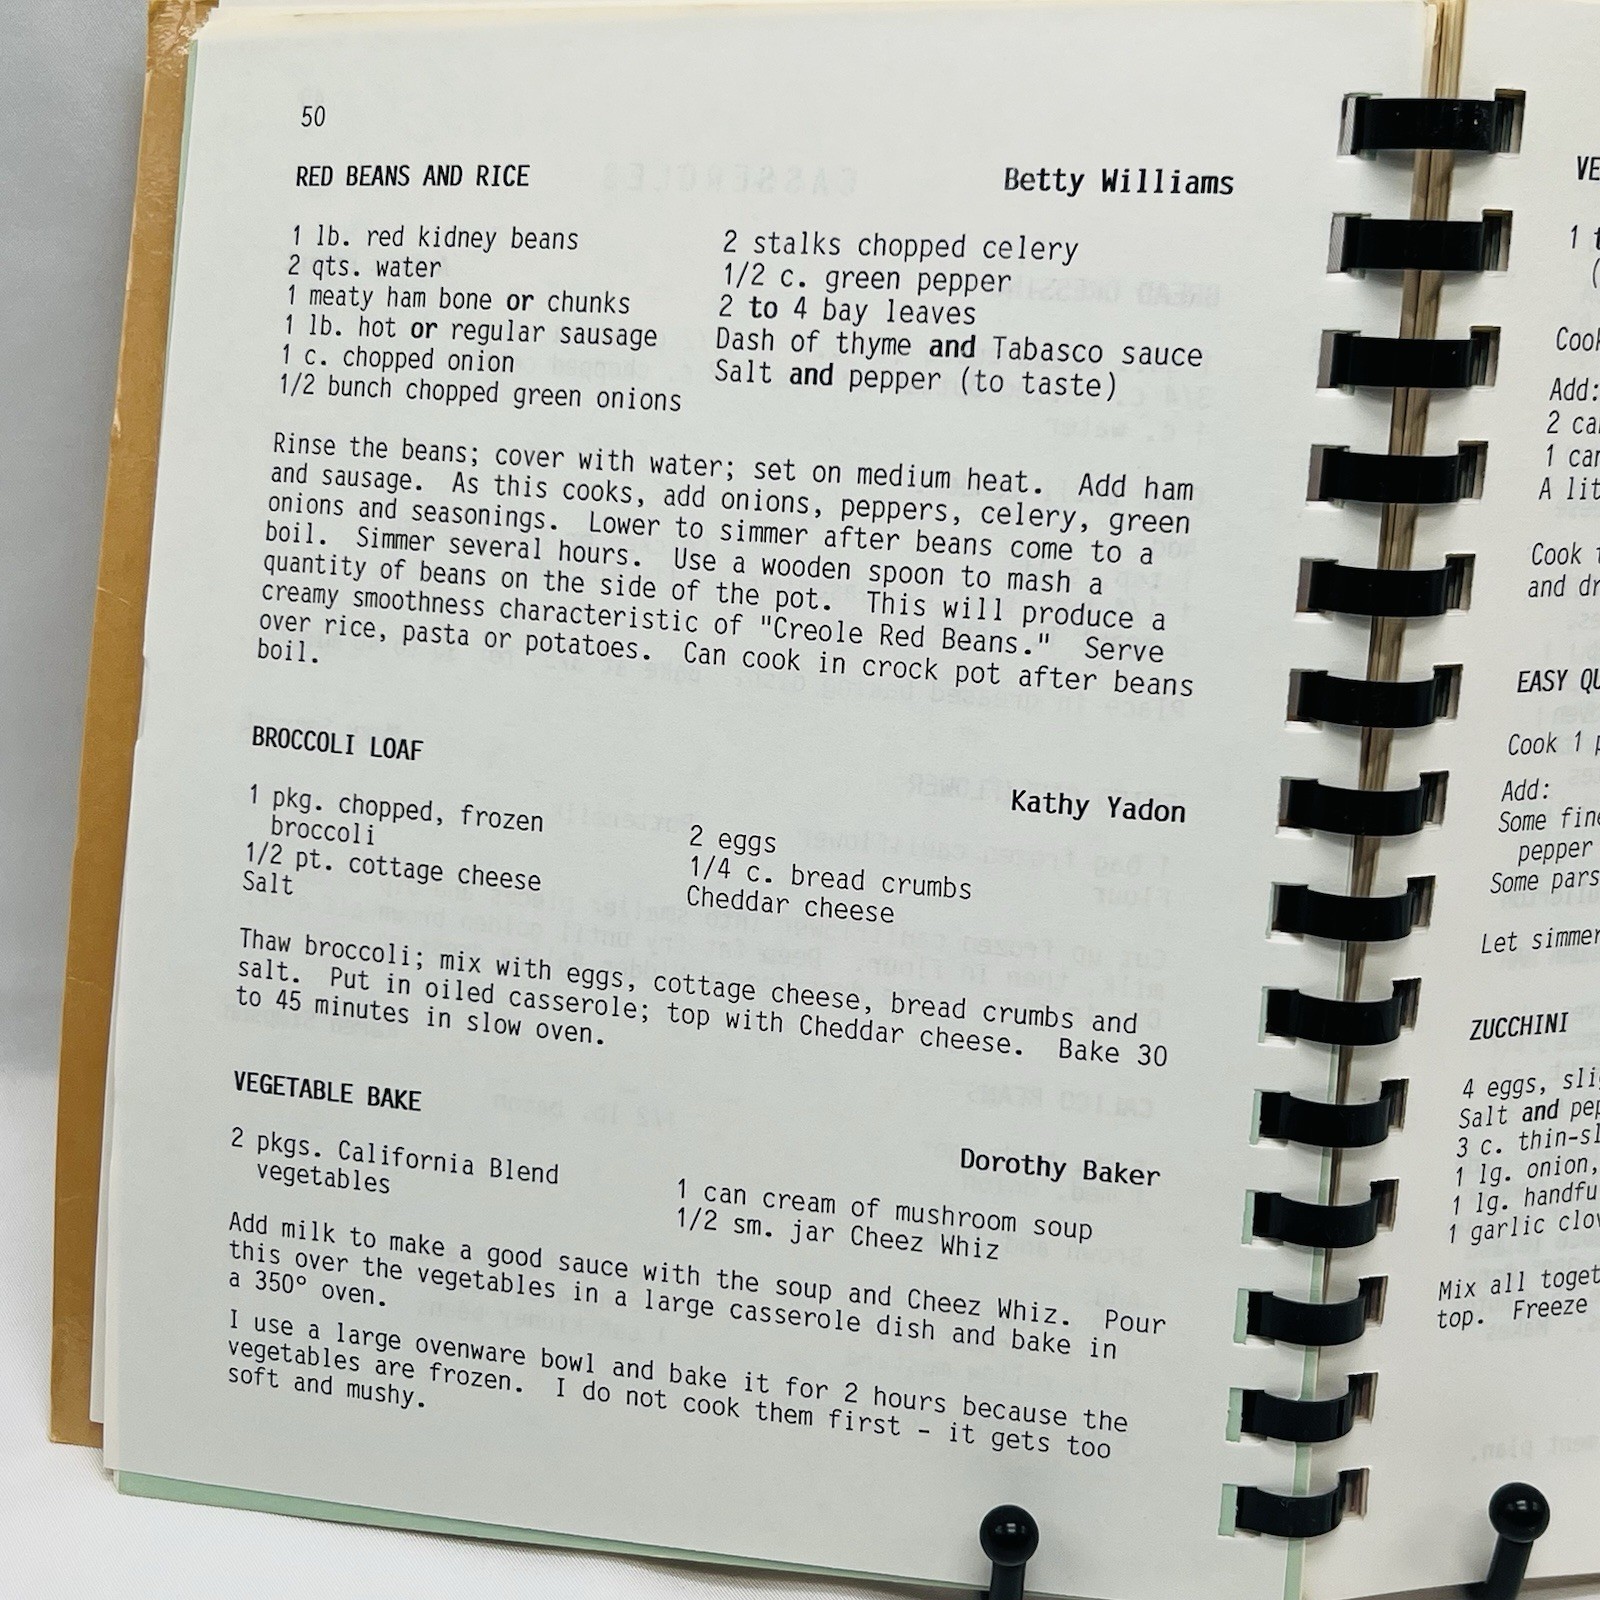 50
RED BEANS AND RICE Betty Williams
1 lb. red kidney beans
2 qts. water
1 meaty ham bone or chunks
1 lb. hot or regular sausage
1 c. chopped onion
1/2 bunch chopped green onions
2 stalks chopped celery
1/2 c. green pepper
2 to 4 bay leaves
Dash of thyme and Tabasco sauce
Salt and pepper (to taste)
Rinse the beans; cover with water; set on medium heat. Add ham
and sausage. As this cooks, add onions, peppers, celery, green
onions and seasonings. Lower to simmer after beans come to a
boil. Simmer several hours. Use a wooden spoon to mash a
quantity of beans on the side of the pot. This will produce a
creamy smoothness characteristic of "Creole Red Beans." Serve
over rice, pasta or potatoes. Can cook in crock pot after beans
boil.
BROCCOLI LOAF
Kathy Yadon
1 pkg. chopped, frozen
broccoli
1/2 pt. cottage cheese
Salt
2 eggs
1/4 c. bread crumbs
Cheddar cheese
Thaw broccoli; mix with eggs, cottage cheese, bread crumbs and
salt. Put in oiled casserole; top with Cheddar cheese. Bake 30
to 45 minutes in slow oven.
VEGETABLE BAKE
Dorothy Baker
2 pkgs. California Blend
vegetables
1 can cream of mushroom soup
1/2 sm. jar Cheez Whiz
Add milk to make a good sauce with the soup and Cheez Whiz. Pour
this over the vegetables in a large casserole dish and bake in
a 350° oven.
I use a large ovenware bowl and bake it for 2 hours because the
vegetables are frozen. I do not cook them first - it gets too
soft and mushy.
1
Add:
2
1
A
Cook
and
EASY
Cook 1
Add:
Some
pepper
Some
Let simmer
ZUCCHINI
4 eggs,
Salt and
3 c.
1 lg. onion,
1 lg.
1 garlic
Mix all
top. Freeze